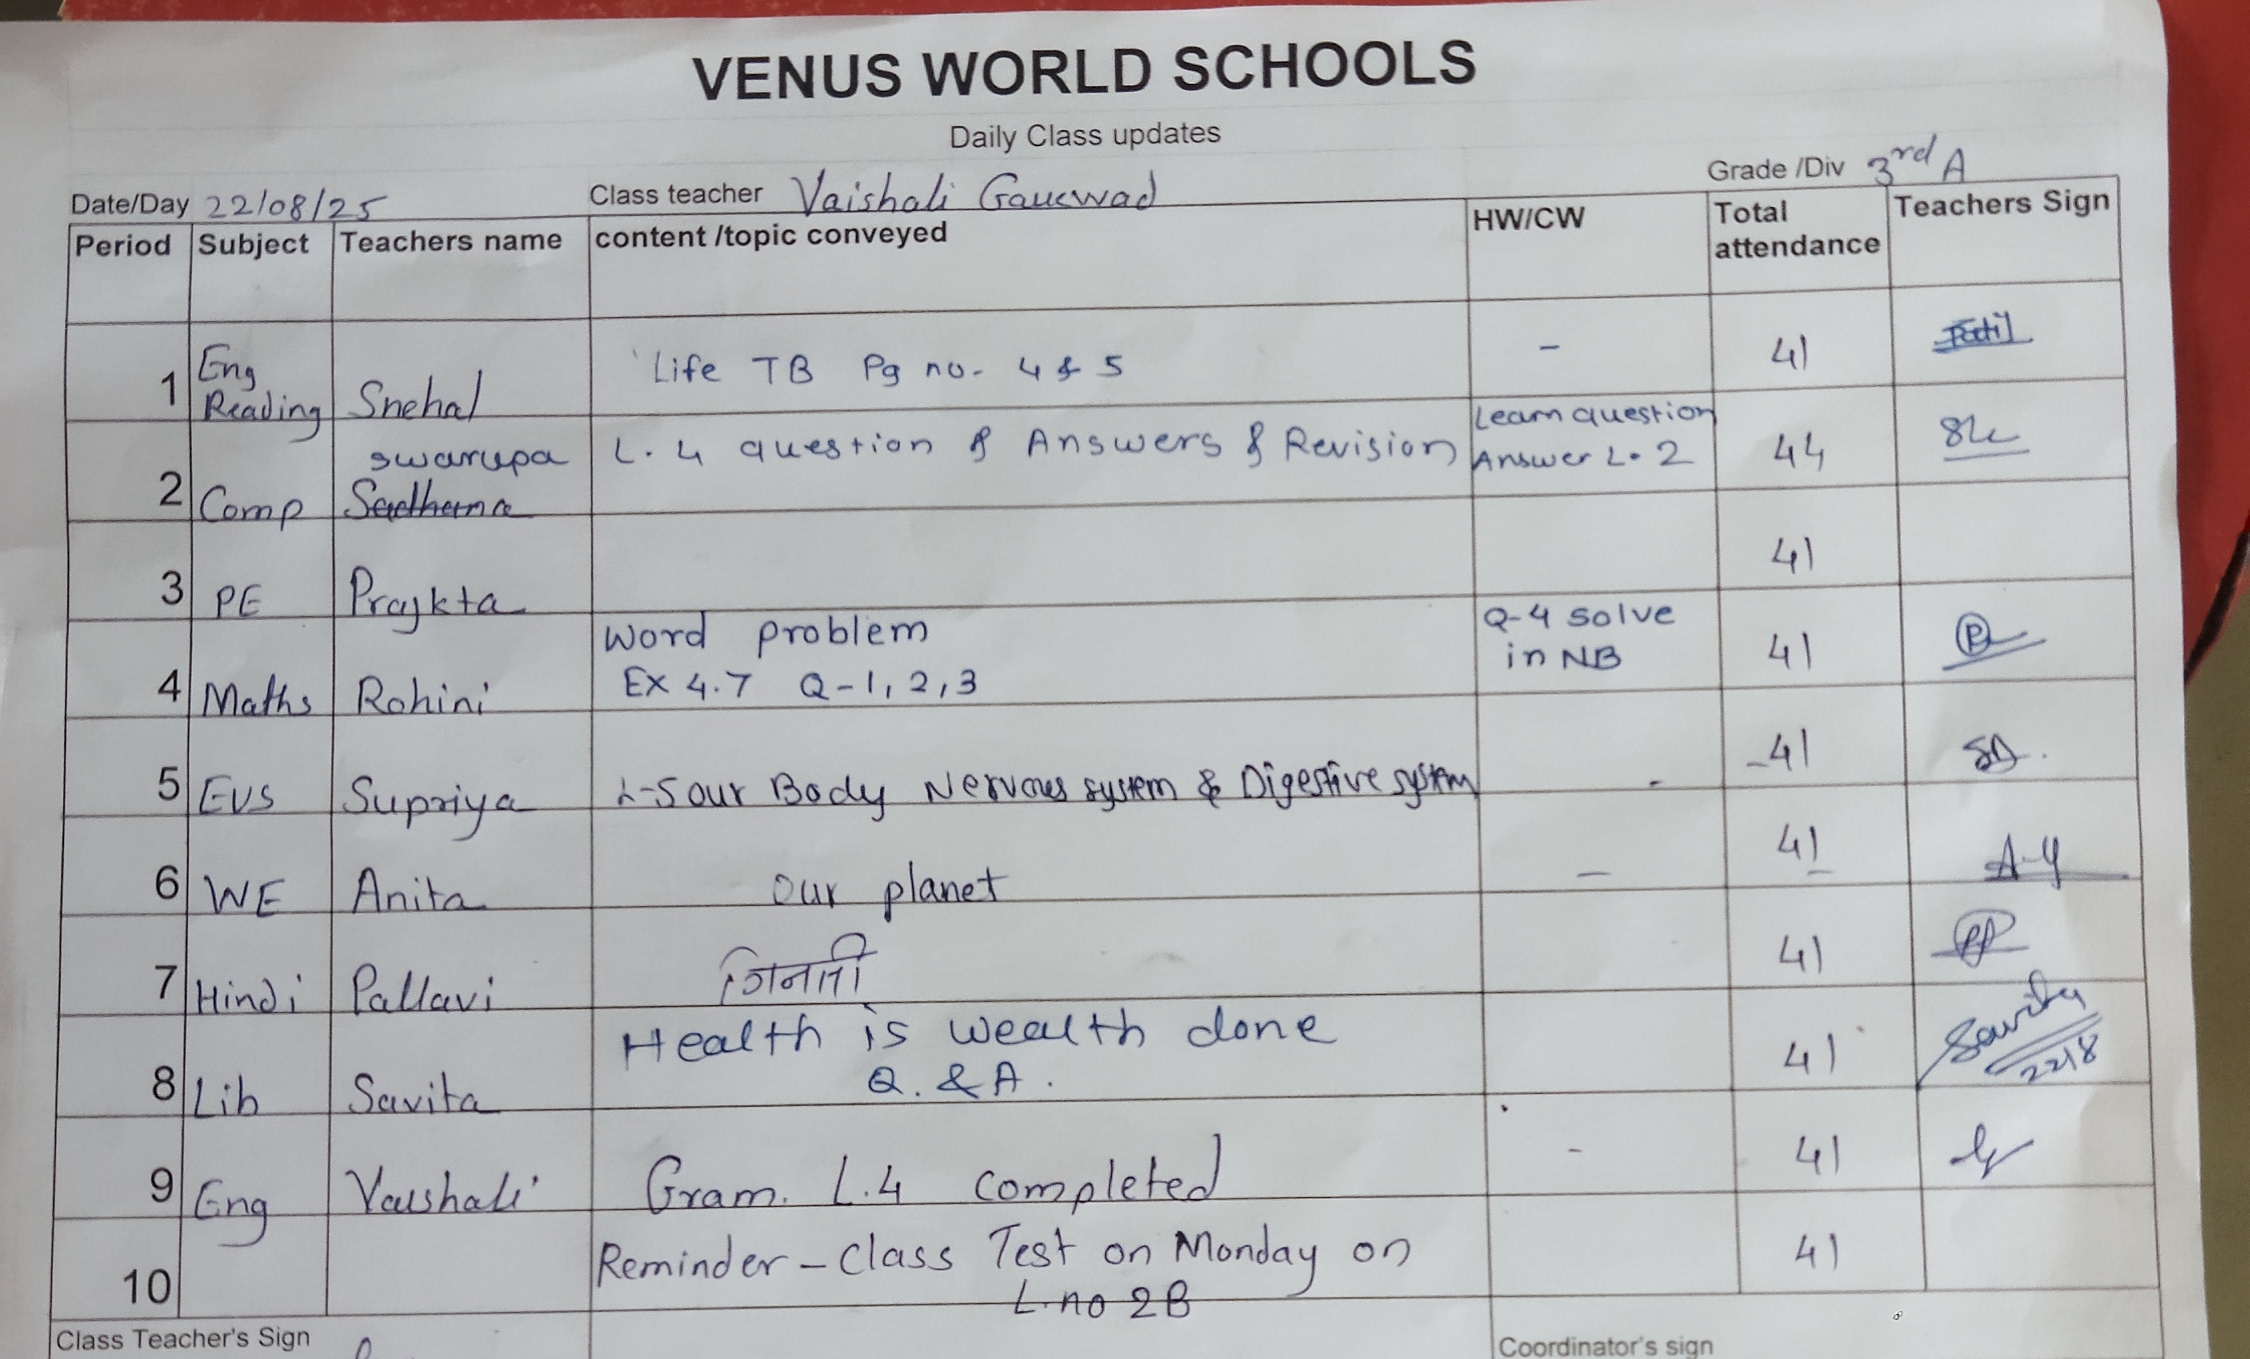 VENUS WORLD SCHOOLS
Daily Class updates
Date/Day 22/08/25 Class teacher Vaishali Gauewad Grade /Div 3rd A
Period Subject Teachers name content /topic conveyed HW/CW Total attendance Teachers Sign
1 Eng Reading Snehal Life TB Pg no. 4 & 5 - 41 Patil
2 Comp swarupa Sadhana L. 4 question & Answers & Revision Learn question Answer L. 2 44
3 PE Prajkta 41
4 Maths Rohini Word problem Ex 4.7 Q-1, 2, 3 Q-4 solve in NB 41
5 EVS Supriya L-5 our Body Nervous system & Digestive system - 41
6 WE Anita our planet - 41 A-Y
7 Hindi Pallavi गिनती 41
8 Lib Savita Health is wealth done Q. & A. 41 Savita 22/8
9 Eng Vaishali Gram. L.4 completed - 41
10 Reminder - Class Test on Monday on L. no 2B 41
Class Teacher's Sign Coordinator's sign